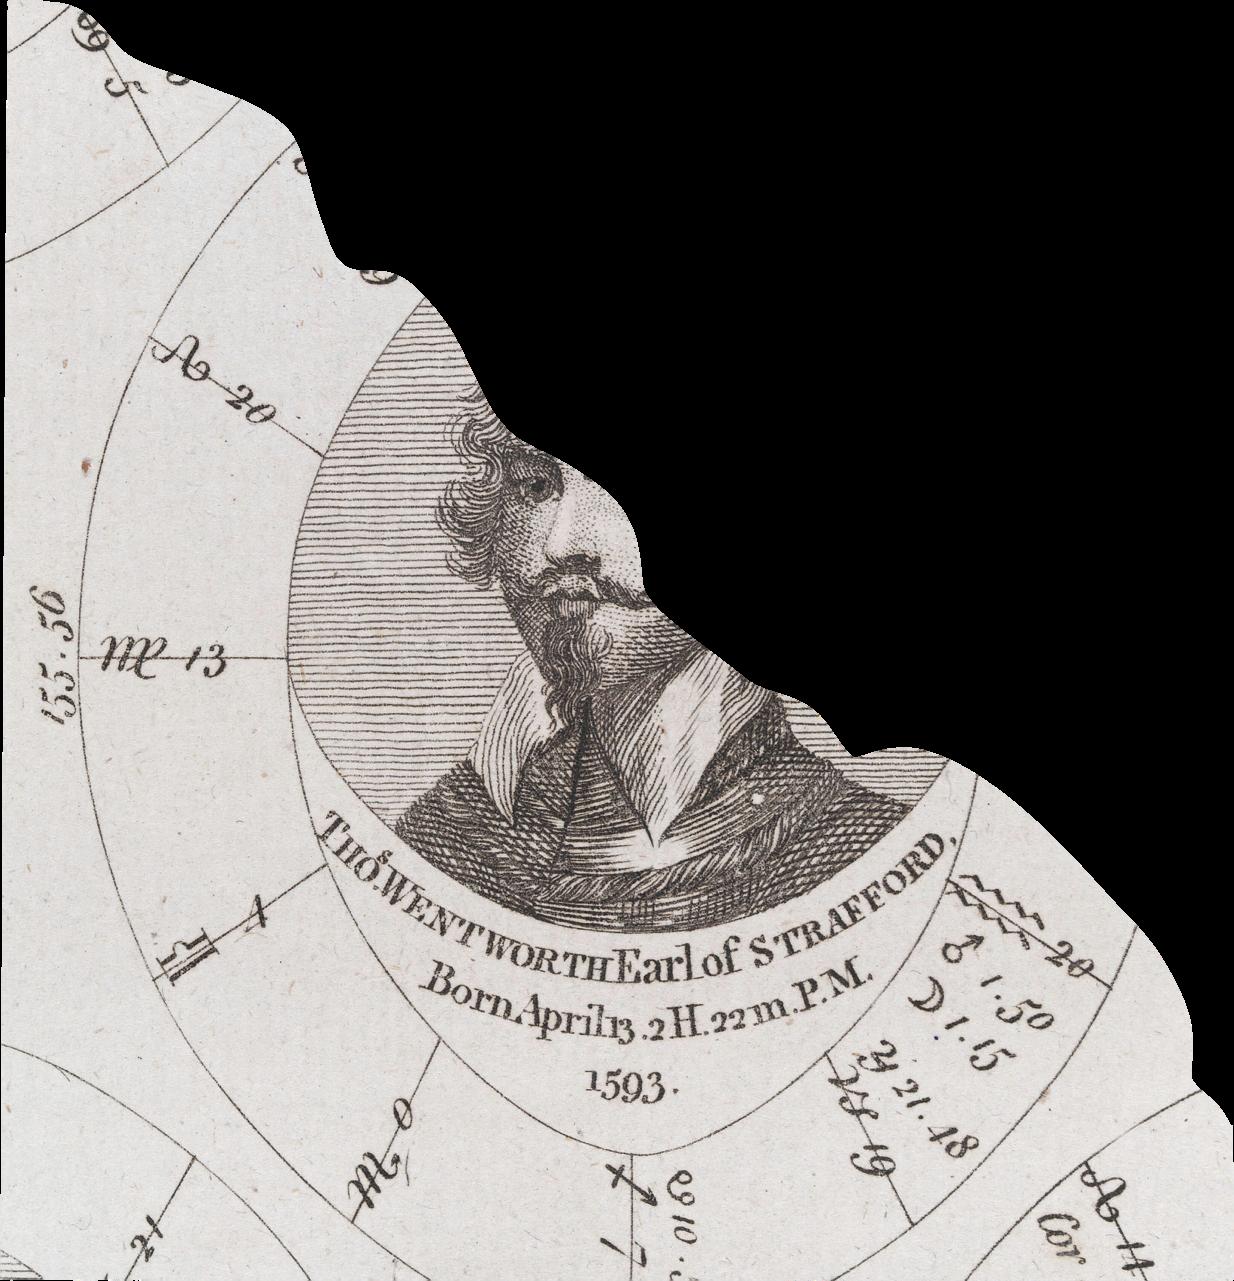 ♌ 20
155.56
♍ 13
♎ 4
♏ 0
♐ 7
♑ 19
♃ 21.48
☽ 1.15
♂ 1.50
♒ 20
THOˢ. WENTWORTH Earl of STRAFFORD,
Born April 13. 2 H. 22 m. P.M.
1593.
21
♌ 14
Cor
5